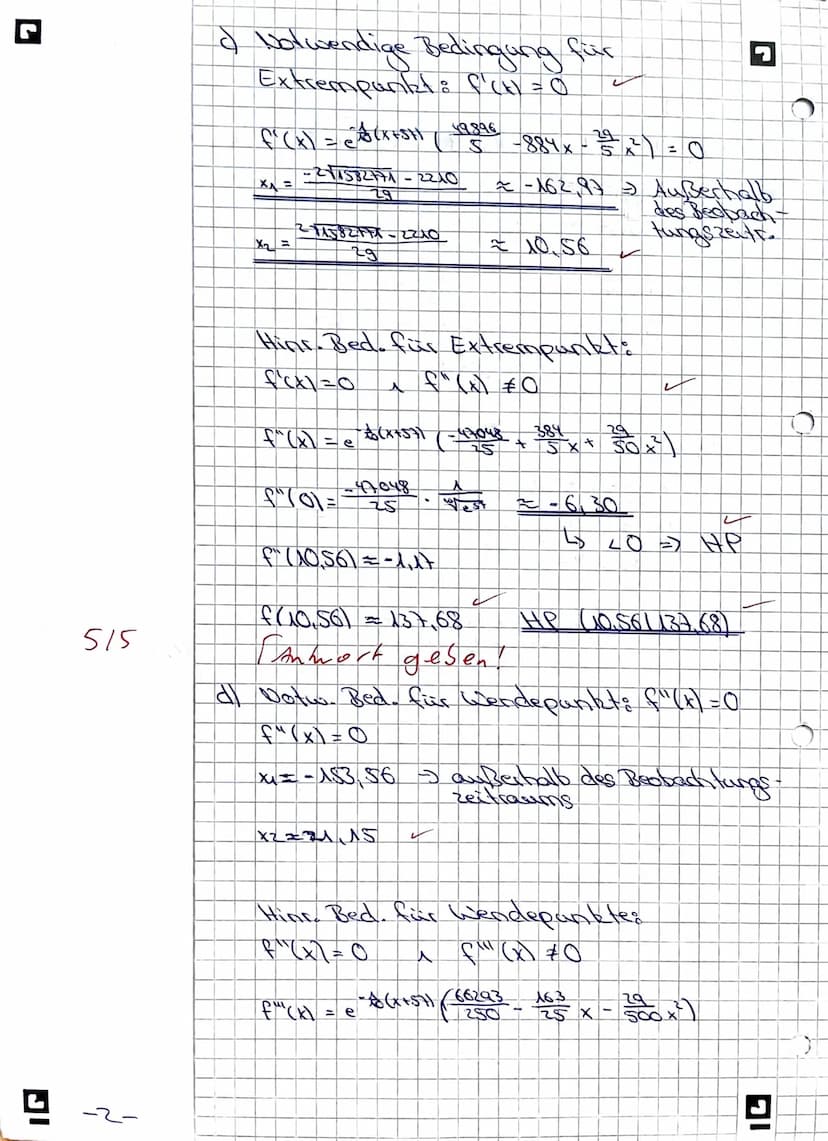 c) Notwendige Bedingung für
Extrempunkt: f'(x) = 0 ✓
f'(x) = e^(-1/10(x+57)) (49896/5 - 884x - 29/5 x²) = 0
x₁ = (-2√1582771 - 2210)/29 ≈ -162,97 ⇒ Außerhalb
des Beobach-
tungszeitr.
x₂ = (2√1582771 - 2210)/29 ≈ 10,56 ✓
Hinr. Bed. für Extrempunkt:
f'(x) = 0 ∧ f''(x) ≠ 0 ✓
f''(x) = e^(-1/10(x+57)) (-47048/25 + 384/5 x + 29/50 x²)
f''(0) = -47048/25 · ≈ -6,30 ✓
↳ <0 ⇒ HP
f''(10,56) ≈ -1,17
f(10,56) ≈ 137,68 ✓ HP (10,56|137,68)
5/5
Antwort geben!
d) Notw. Bed. für Wendepunkt: f''(x) = 0
f''(x) = 0
x₁ = -153,56 → außerhalb des Beobachtungs-
zeitraums
x₂ = 21,15 ✓
Hinr. Bed. für Wendepunkte:
f''(x) = 0 ∧ f'''(x) ≠ 0
f'''(x) = e^(-1/10(x+57)) (66293/250 - 163/25 x - 29/500 x²)
-2-